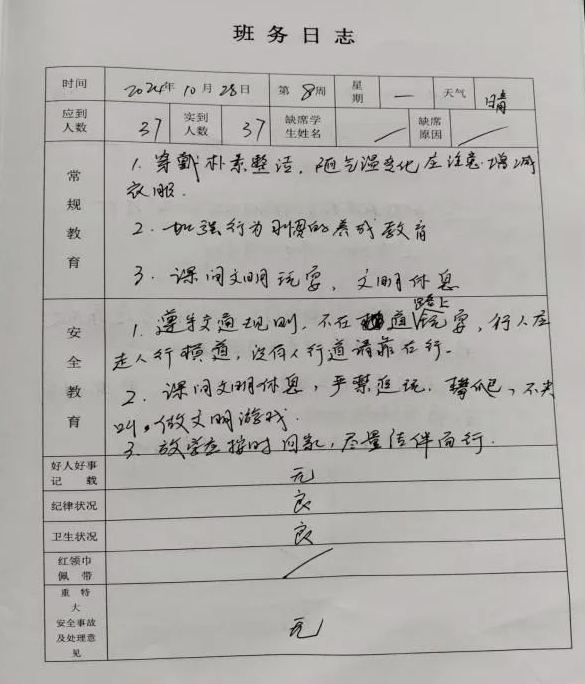 班务日志
时间 2024年10月28日 第8周 星期 一 天气 晴
应到人数 37 实到人数 37 缺席学生姓名 / 缺席原因 /
常规教育
1. 穿戴朴素整洁，随气温变化应注意增减
衣服.
2. 加强行为习惯的养成教育
3. 课间文明玩耍，文明休息
安全教育
1. 遵守交通规则，不在道路上玩耍，行人应
走人行横道，没有人行道请靠右行.
2. 课间文明休息，严禁追玩.攀爬、不尖
叫。做文明游戏.
3. 放学应按时回家，尽量结伴而行.
好人好事记载 无
纪律状况 良
卫生状况 良
红领巾佩带 /
重特大安全事故及处理意见 无